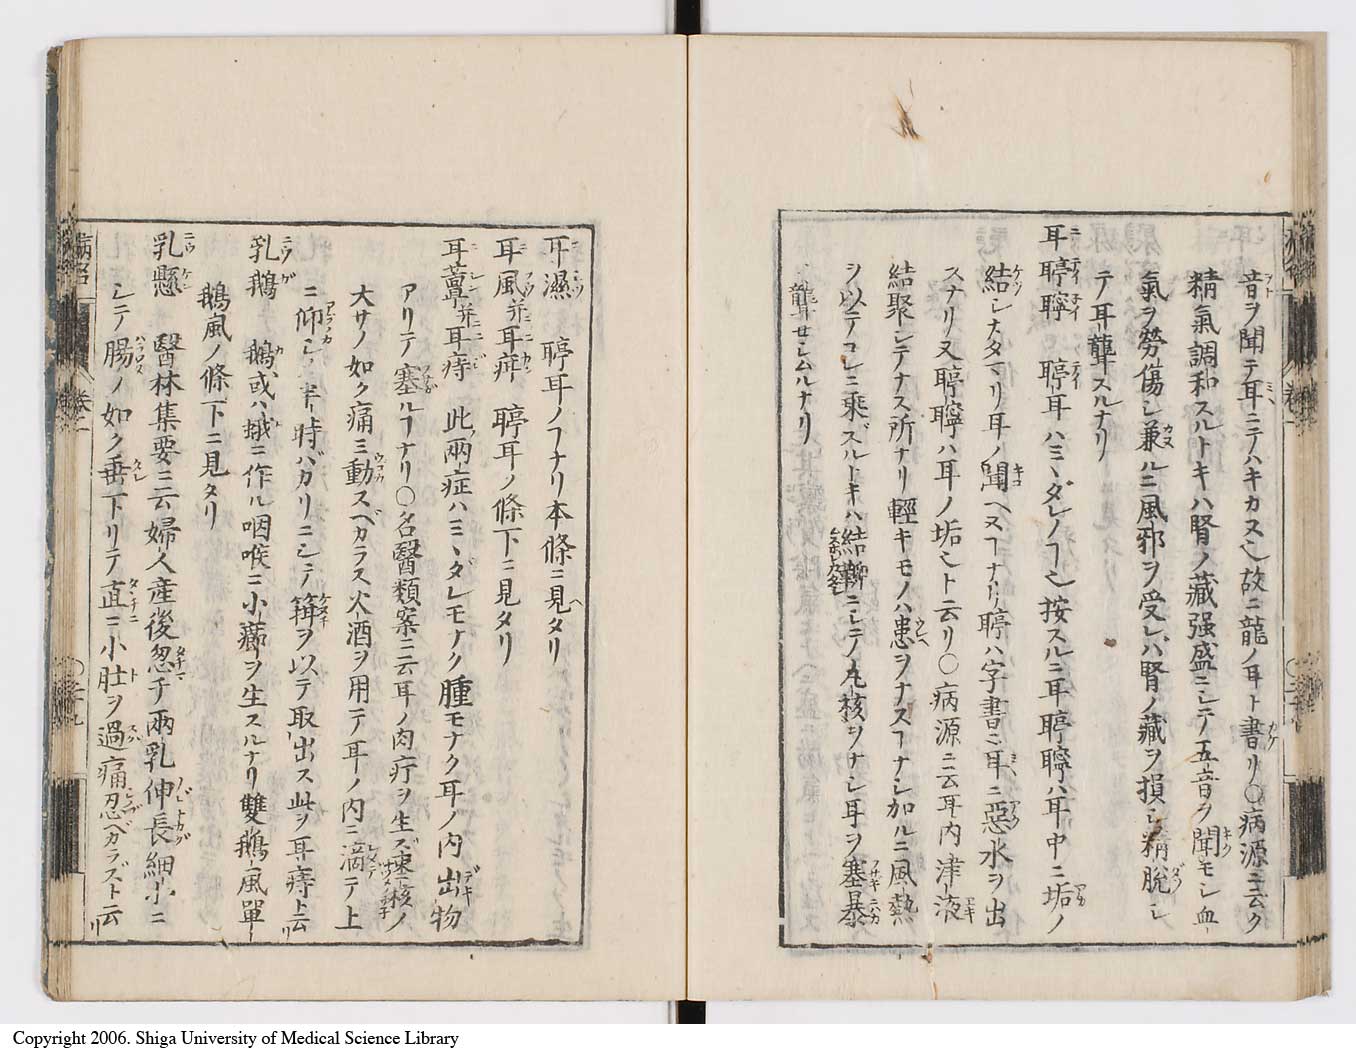 音ヲ聞テ耳ニテハキカヌ也故ニ龍ノ耳ト書リ〇病源ニ云ク
精氣調和スルトキハ腎ノ藏强盛ニシテ五音ヲ聞モシ血
氣ヲ勞傷シ兼ルニ風邪ヲ受レハ腎ノ藏ヲ損シ精脫シ
テ耳聾スルナリ
耳聤聹 聤耳ハミヽダレノヿ也按スルニ耳聤聹ハ耳中ニ垢ノ
結シナタマリ耳ノ聞ヘヌヿナリ聤ハ字書ニ耳ニ惡水ヲ出
スナリ又聤聹ハ耳ノ垢也ト云リ〇病源ニ云耳内津液
結聚シテナス所ナリ輕キモノハ患ヲナスヿナシ加ルニ風熱
ヲ以テコレニ乘ズルトキハ結鞕ニシテ丸核ヲナシ耳ヲ塞暴
聾セシムルナリ
耳濕 聤耳ノヿナリ本條ニ見タリ
耳風并ニ耳疳 聤耳ノ條下ニ見タリ
耳蕈并ニ耳痔 此兩症ハミヽダレモナク腫モナク耳ノ内出物
アリテ塞ルヿナリ〇名醫類案ニ云耳ノ肉疔ヲ生ズ棗核ノ
大サノ如ク痛ミ動スベガラス火酒ヲ用テ耳ノ内ニ滴テ上
ニ仰シ半時バガリニシテ箝ヲ以テ取出ス此ヲ耳痔ト云リ
乳鵝 鵝或ハ蛾ニ作ル咽喉ニ小癤ヲ生スルナリ雙鵝風單
鵝風ノ條下ニ見タリ
乳懸 醫林集要ニ云婦人産後忽チ兩乳伸長細小ニ
シテ腸ノ如ク垂下リテ直ニ小肚ヲ過痛忍ベガラズト云リ
病名
卷一
〇二十九
Copyright 2006. Shiga University of Medical Science Library